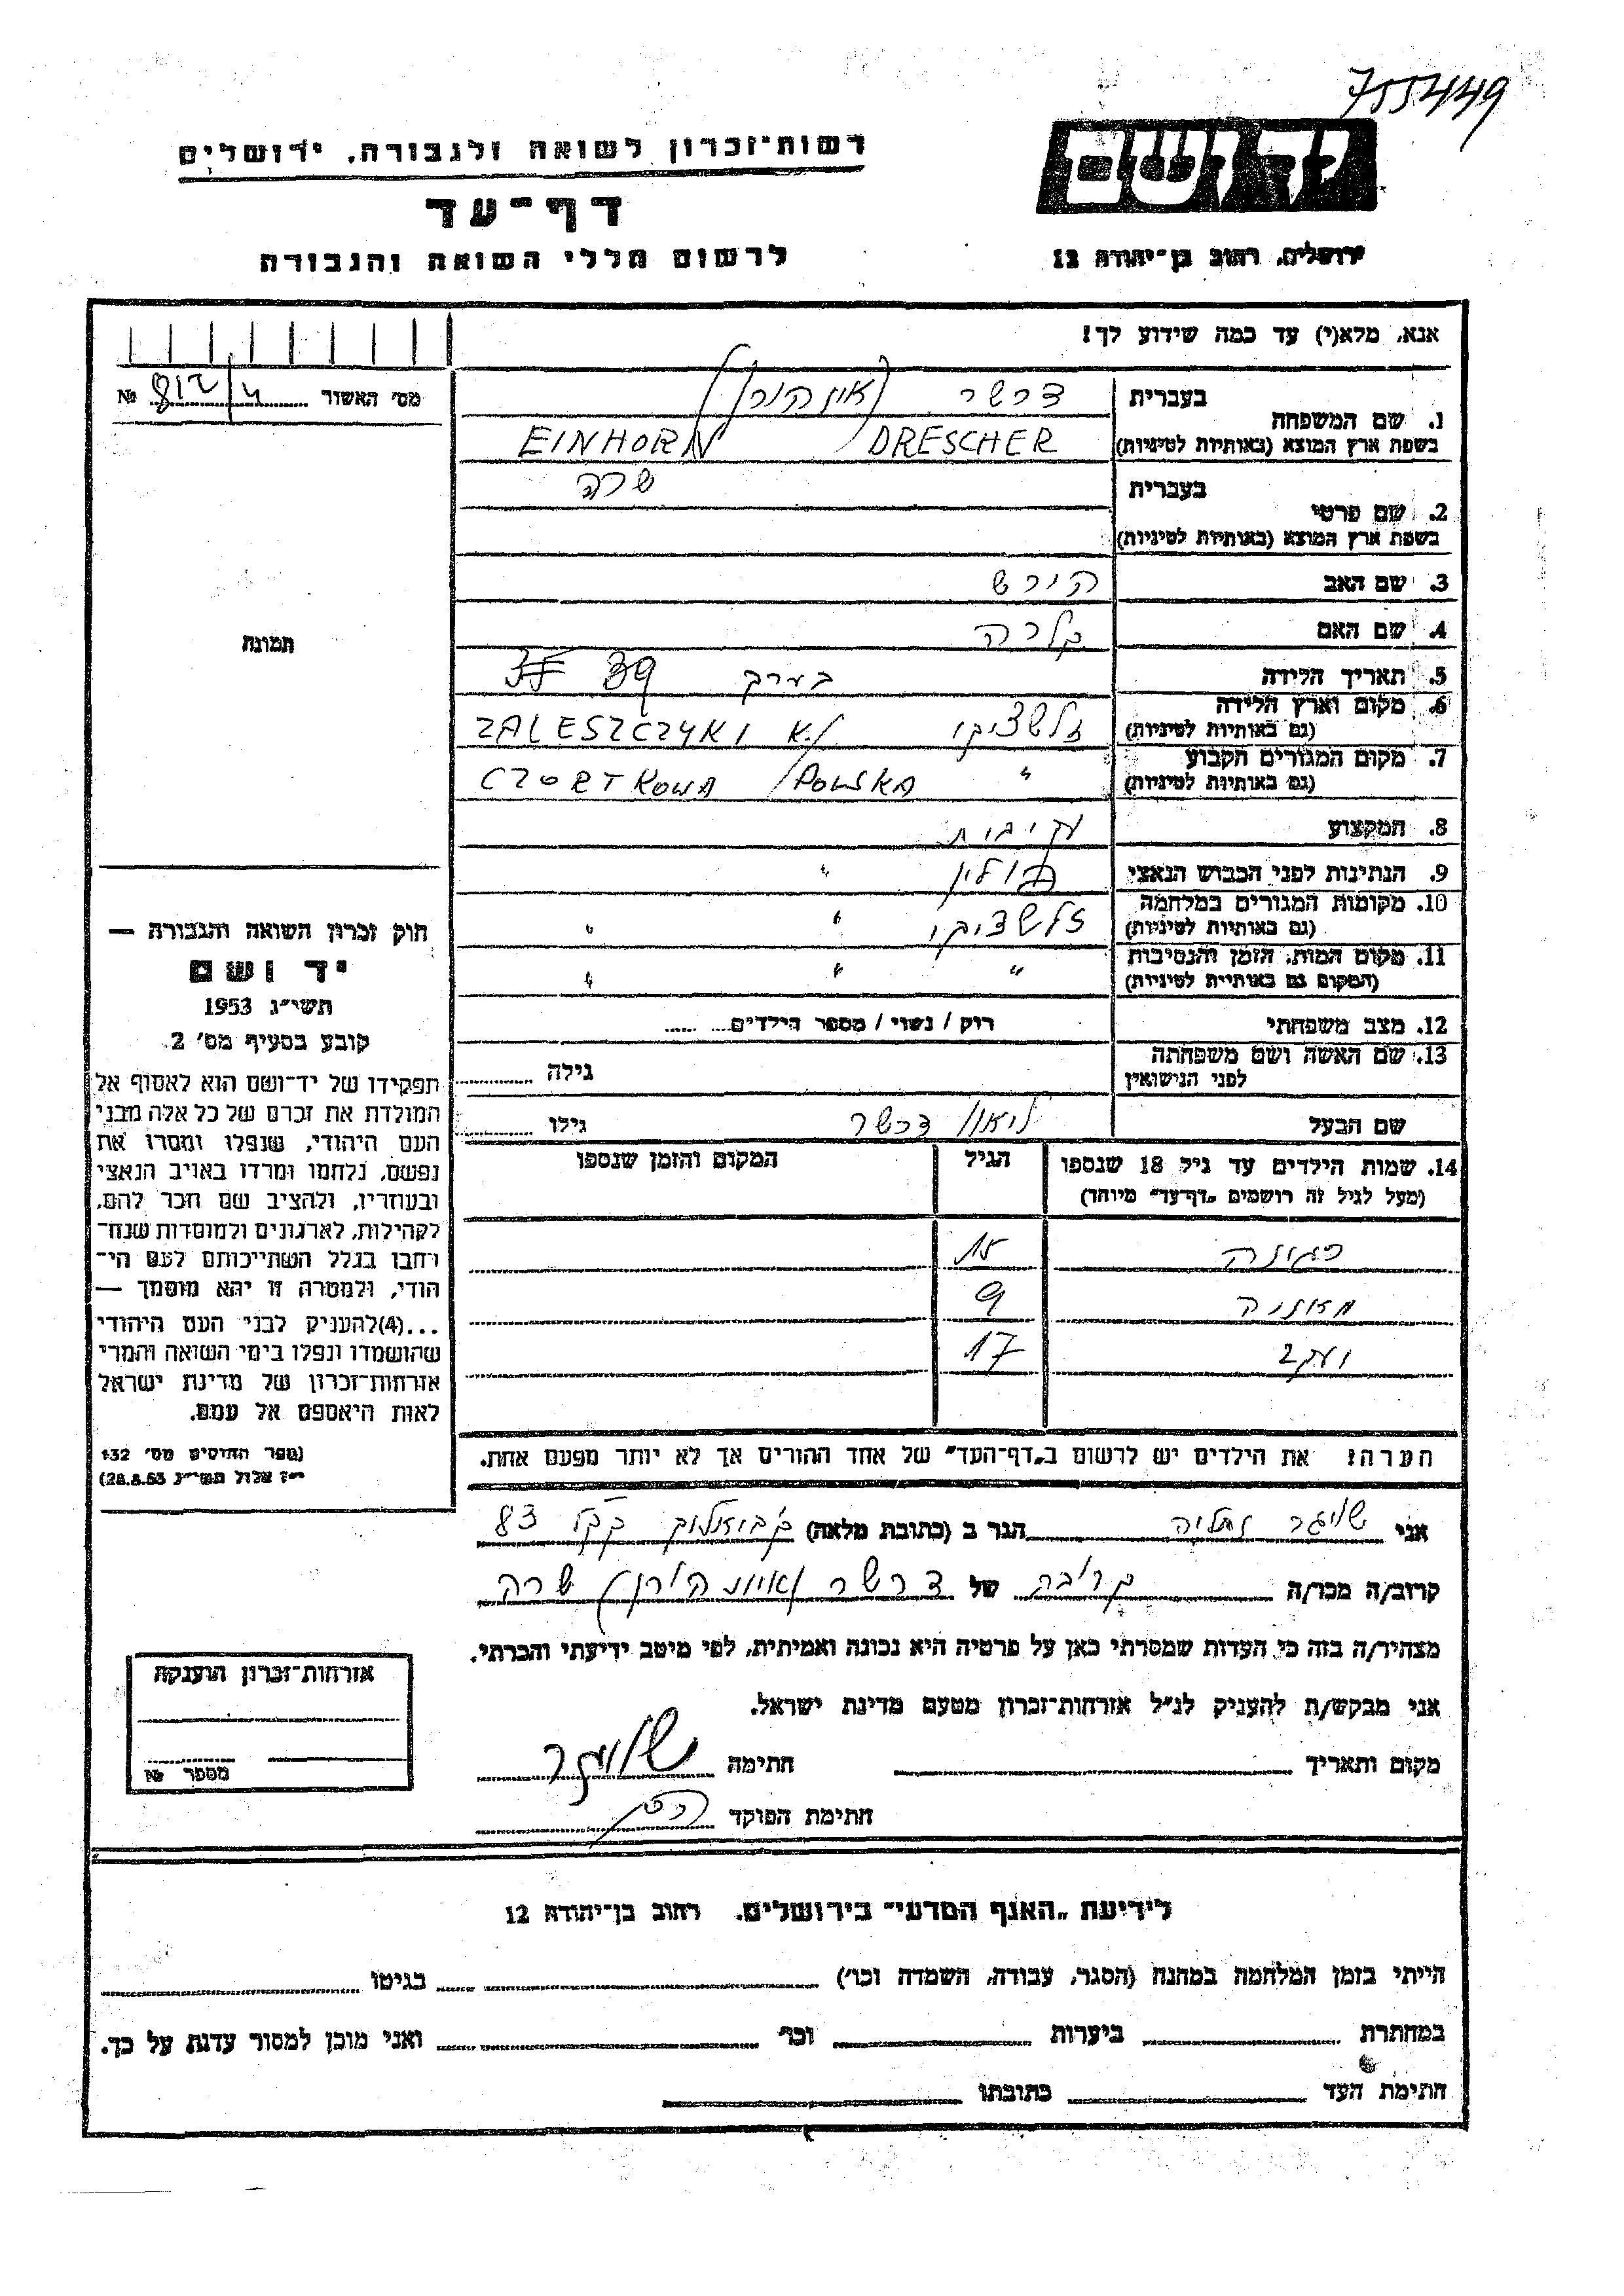 7554449
יד ושם
ירושלים, רחוב בן־יהודה 12
רשות־זכרון לשואה ולגבורה, ירושלים
דף־עד
לרשום חללי השואה והגבורה
אנא, מלא(י) עד כמה שידוע לך!
מס' האשור № 812/4
1. שם המשפחה
בעברית דרשר (אינהורן)
בשפת ארץ המוצא (באותיות לטיניות) DRESCHER / EINHORN
2. שם פרטי
בעברית שרה
בשפת ארץ המוצא (באותיות לטיניות)
3. שם האב הירש
4. שם האם קלרה
5. תאריך הלידה בערך 39
6. מקום וארץ הלידה זלשציקי ZALESZCZYKI K/
(גם באותיות לטיניות)
7. מקום המגורים הקבוע " CZORTKOWA /POLSKA
(גם באותיות לטיניות)
8. המקצוע
9. הנתינות לפני הכבוש הנאצי פולין "
10. מקומות המגורים במלחמה זלשציקי " "
(גם באותיות לטיניות)
11. מקום המות, הזמן והנסיבות " " "
(המקום גם באותיות לטיניות)
12. מצב משפחתי רווק / נשוי / מספר הילדים
13. שם האשה ושם משפחתה
לפני הנישואין
גילה
שם הבעל ליאון דרשר גילו
14. שמות הילדים עד גיל 18 שנספו הגיל המקום והזמן שנספו
(מעל לגיל זה רושמים "דף־עד" מיוחד)
15
9
17
הערה! את הילדים יש לרשום ב"דף־העד" של אחד ההורים אך לא יותר מפעם אחת.
תמונה
חוק זכרון השואה והגבורה —
יד ושם
תשי"ג 1953
קובע בסעיף מס' 2.
תפקידו של יד־ושם הוא לאסוף אל
המולדת את זכרם של כל אלה מבני
העם היהודי, שנפלו ומסרו את
נפשם, נלחמו ומרדו באויב הנאצי
ובעוזריו, ולהציב שם וזכר להם,
לקהילות, לארגונים ולמוסדות שנח־
רבו בגלל השתייכותם לעם הי־
הודי, ולמטרה זו יהא מוסמך —
...(4) להעניק לבני העם היהודי
שהושמדו ונפלו בימי השואה והמרי
אזרחות־זכרון של מדינת ישראל
לאות היאספם אל עמם.
(ספר החוקים מס' 132
י"ז אלול תשי"ג 28.8.53)
אני הגר ב (כתובת מלאה) ק. ביאליק קקל 83
קרוב/ה מכר/ה קרובה של דרשר (איינהורן) שרה
מצהיר/ה בזה כי העדות שמסרתי כאן על פרטיה היא נכונה ואמיתית, לפי מיטב ידיעתי והכרתי.
אני מבקש/ת להעניק לנ"ל אזרחות־זכרון מטעם מדינת ישראל.
מקום ותאריך חתימה
חתימת הפוקד
אזרחות־זכרון הוענקה
מספר №
לידיעת "האגף המדעי" בירושלים, רחוב בן־יהודה 12
הייתי בזמן המלחמה במחנה (הסגר, עבודה, השמדה וכו') בגיטו
במחתרת ביערות וכו' ואני מוכן למסור עדות על כך.
חתימת העד כתובתו